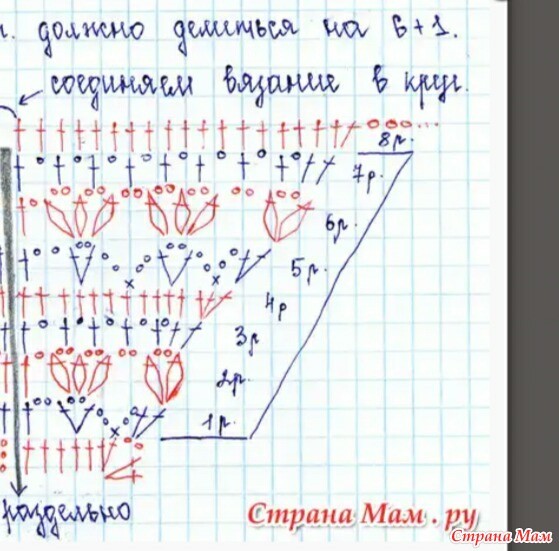 должно делиться на 6+1.
соединяем вязание в круг.
8р.
7р.
6р.
5р.
4р
3р
2р.
1р.
раздельно
Страна Мам . ру
Страна Мам